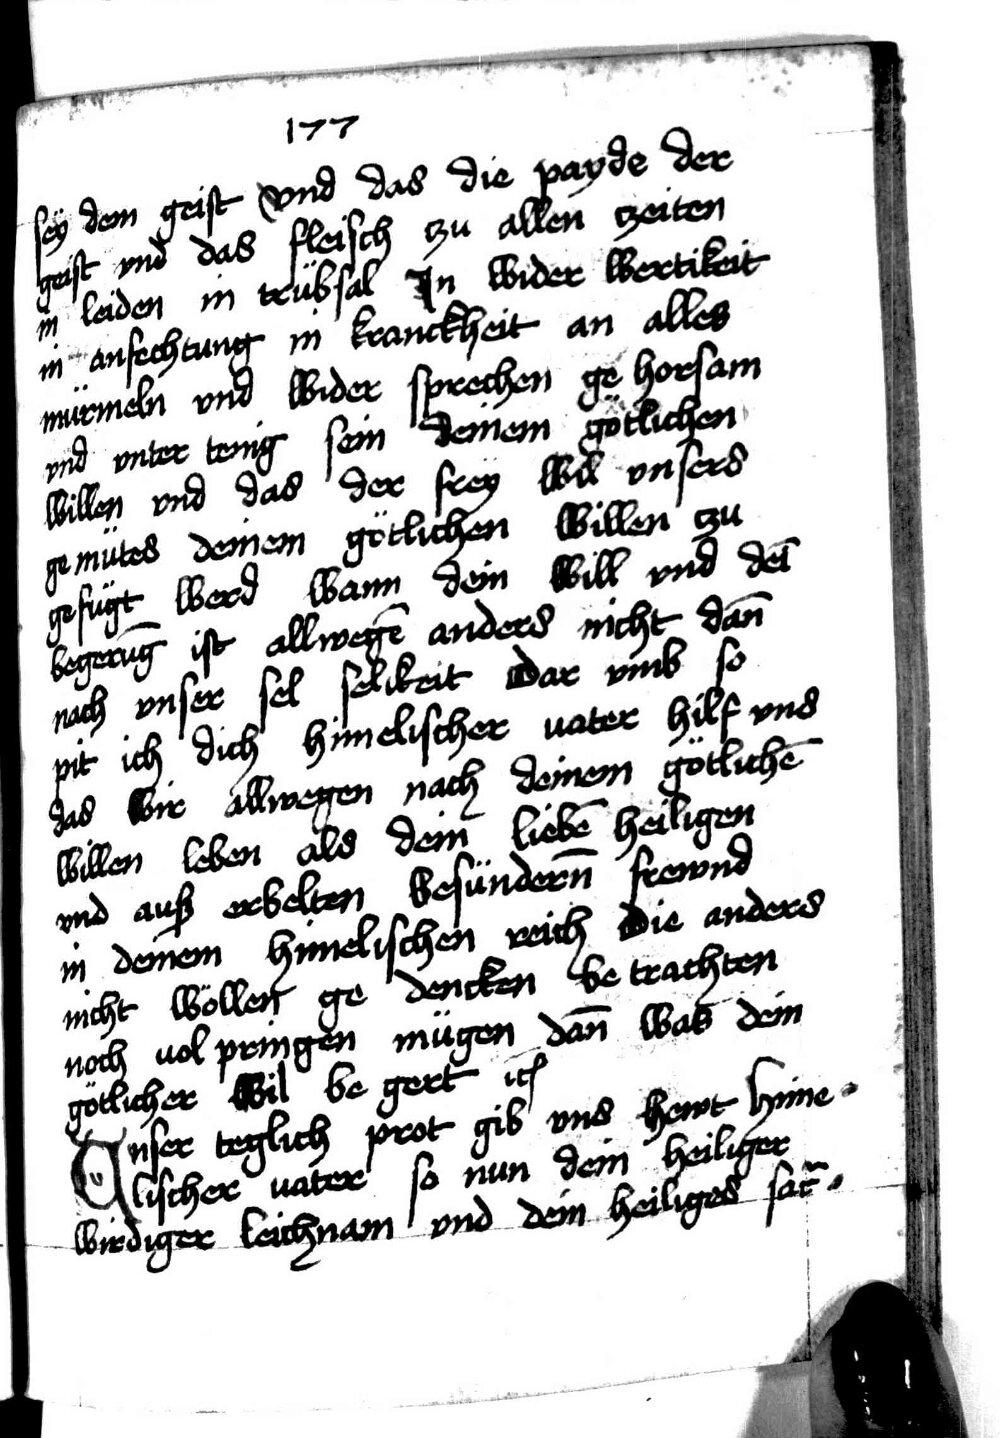 177
sey dem geist vnd das die payde der
geist vnd das fleisch zu allen zeiten
in leiden in trübsal In wider wertikeit
in anfechtung in kranckheit an alles
mürmeln vnd wider sprechen ge horsam
vnd vnter tenig sein deinem götlichen
willen vnd das der frey wil vnsers
gemütes deinem götlichen willen zu
gefügt werd wann dein will vnd dei͞
begerūg ist allwegē anders nicht dañ
nach vnser sel selikeit Dar vmb so
pit ich dich himelischer uater hilf vns
das wir allwegen nach deinem götlichē
willen leben als dein liebē heiligen
vnd auß erbelten besündern̄ frewnd
in deinem himelischen reich Die anders
nicht wöllen ge dencken be trachten
noch uol pringen mügen dañ was dein
götlicher wil be gert ich
Vnser teglich prot gib vns hewt hime
lischer uater so nun dein heiliger
wirdiger leichnam vnd dein heiliges sacr̄